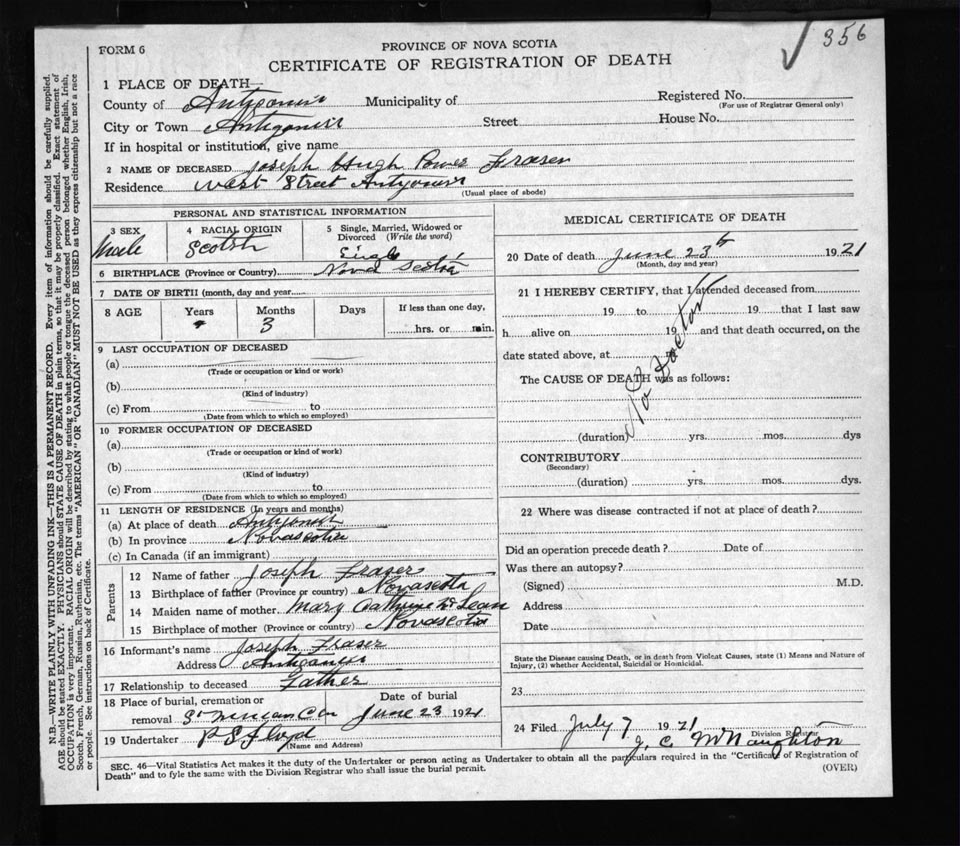 356
FORM 6
PROVINCE OF NOVA SCOTIA
CERTIFICATE OF REGISTRATION OF DEATH
1 PLACE OF DEATH—
County of Antigonish Municipality of Registered No.
(For use of Registrar General only)
City or Town Antigonish Street House No.
If in hospital or institution, give name
2 NAME OF DECEASED Joseph Hugh Power Fraser
Residence West Street Antigonish
(Usual place of abode)
PERSONAL AND STATISTICAL INFORMATION
3 SEX 4 RACIAL ORIGIN 5 Single, Married, Widowed or Divorced (Write the word)
Male Scotsh Single
6 BIRTHPLACE (Province or Country) Nova Scotia
7 DATE OF BIRTH (month, day and year
8 AGE Years Months Days If less than one day,
3 hrs. or min.
9 LAST OCCUPATION OF DECEASED
(a)
(Trade or occupation or kind or work)
(b)
(Kind of industry)
(c) From to
(Date from which to which so employed)
10 FORMER OCCUPATION OF DECEASED
(a)
(Trade or occupation or kind of work)
(b)
(Kind of industry)
(c) From to
(Date from which to which so employed)
11 LENGTH OF RESIDENCE (In years and months)
(a) At place of death Antigonish
(b) In province Novascotia
(c) In Canada (if an immigrant)
Parents
12 Name of father Joseph Fraser
13 Birthplace of father (Province or country) Novascotia
14 Maiden name of mother Mary Cathrine McLean
15 Birthplace of mother (Province or country) Novascotia
16 Informant's name Joseph Fraser
Address Antigonish
17 Relationship to deceased Father
18 Place of burial, cremation or removal Date of burial
June 23 1921
19 Undertaker P S Floyd
(Name and Address)
MEDICAL CERTIFICATE OF DEATH
20 Date of death June 23th 1921
(Month, day and year)
21 I HEREBY CERTIFY, that I attended deceased from
19 to 19 that I last saw
h alive on 19 and that death occurred, on the
date stated above, at
The CAUSE OF DEATH was as follows:
No Doctor
(duration) yrs. mos. dys
CONTRIBUTORY
(Secondary)
(duration) yrs. mos. dys.
22 Where was disease contracted if not at place of death?
Did an operation precede death? Date of
Was there an autopsy?
(Signed) M.D.
Address
Date
State the Disease causing Death, or in death from Violent Causes, state (1) Means and Nature of
Injury, (2) whether Accidental, Suicidal or Homicidal.
23
24 Filed July 7 1921
Division Registrar
J. C. McNaughton
SEC. 46—Vital Statistics Act makes it the duty of the Undertaker or person acting as Undertaker to obtain all the particulars required in the "Certificate of Registration of
Death" and to fyle the same with the Division Registrar who shall issue the burial permit.
(OVER)
N.B.—WRITE PLAINLY WITH UNFADING INK—THIS IS A PERMANENT RECORD. Every item of information should be carefully supplied.
AGE should be stated EXACTLY. PHYSICIANS should STATE CAUSE OF DEATH in plain terms, so that it may be properly classified. Exact statement of
OCCUPATION is very important. RACIAL ORIGIN will be described by stating to what people or tongue the deceased person belonged whether English, Irish,
Scotch, French, German, Russian, Ruthenian, etc. The terms "AMERICAN" OR "CANADIAN" MUST NOT BE USED as they express citizenship but not a race
or people. See instructions on back of Certificate.